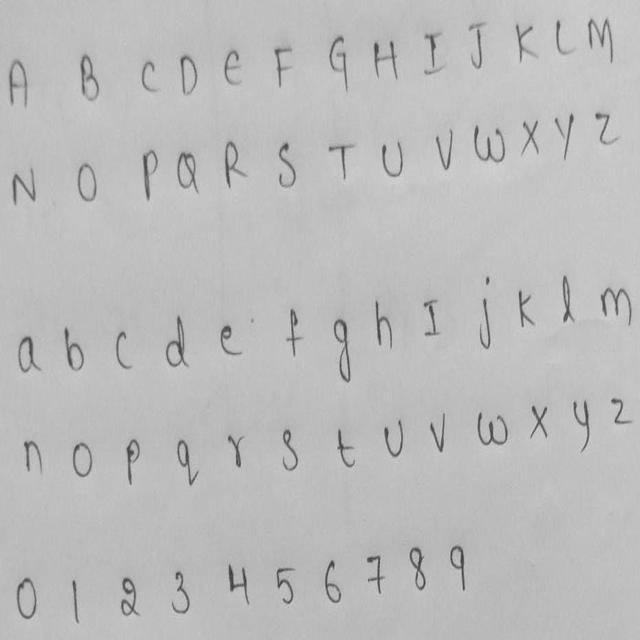 A B C D e F G H I J K L M
N O P Q R S T U V W X Y Z
a b c d e f g h I j k l m
n o p q r s t u v w x y z
0 1 2 3 4 5 6 7 8 9